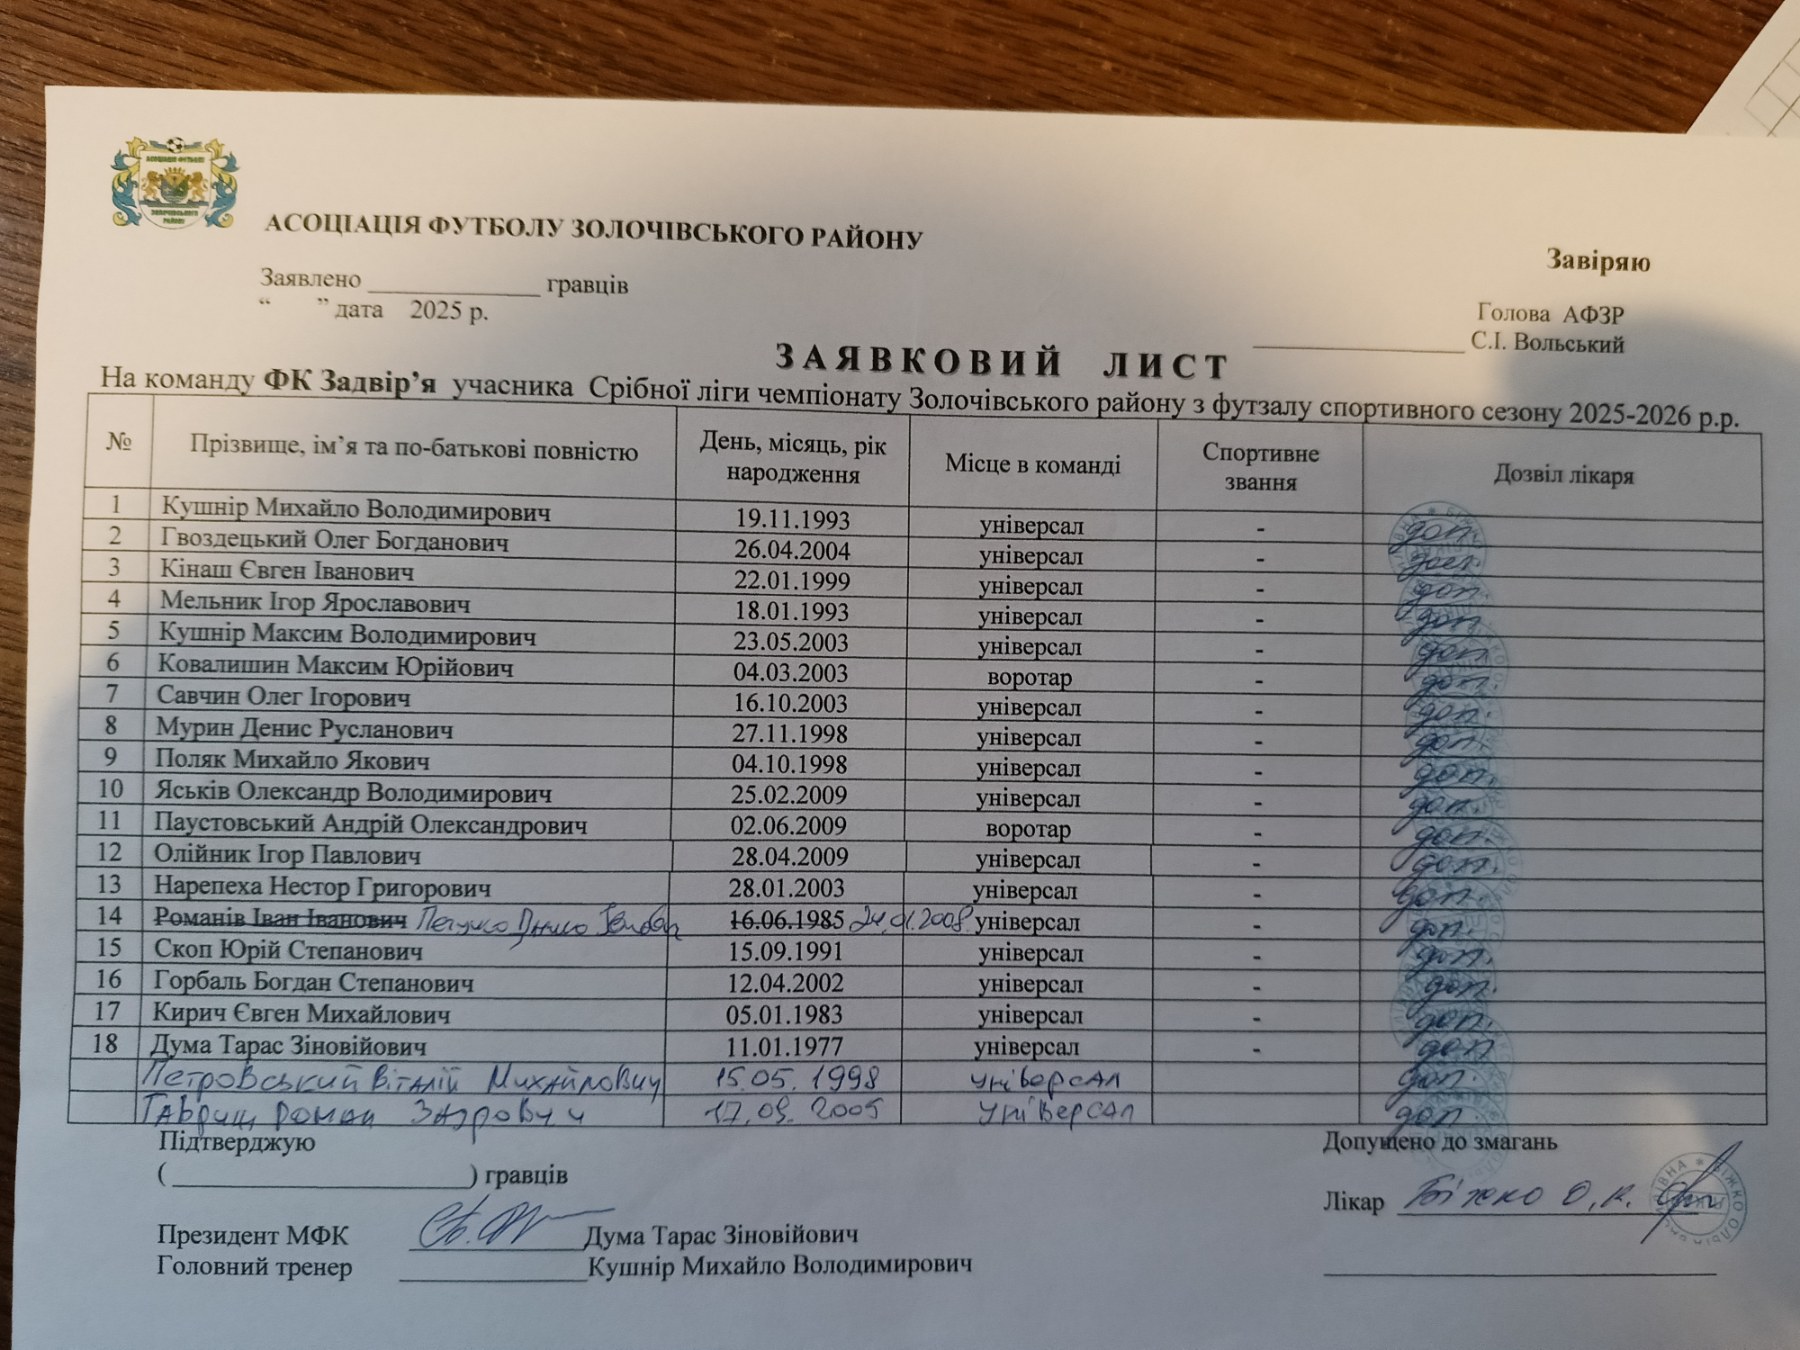 АСОЦІАЦІЯ ФУТБОЛУ
ЗОЛОЧІВСЬКОГО
РАЙОНУ
АСОЦІАЦІЯ ФУТБОЛУ ЗОЛОЧІВСЬКОГО РАЙОНУ
Завіряю
Заявлено _____________ гравців
“ ” дата 2025 р.
Голова АФЗР
________________ С.І. Вольський
ЗАЯВКОВИЙ ЛИСТ
На команду ФК Задвір’я учасника Срібної ліги чемпіонату Золочівського району з футзалу спортивного сезону 2025-2026 р.р.
№ Прізвище, ім’я та по-батькові повністю День, місяць, рік народження Місце в команді Спортивне звання Дозвіл лікаря
1 Кушнір Михайло Володимирович 19.11.1993 універсал - доп.
2 Гвоздецький Олег Богданович 26.04.2004 універсал - доп.
3 Кінаш Євген Іванович 22.01.1999 універсал - доп.
4 Мельник Ігор Ярославович 18.01.1993 універсал - доп.
5 Кушнір Максим Володимирович 23.05.2003 універсал - доп.
6 Ковалишин Максим Юрійович 04.03.2003 воротар - доп.
7 Савчин Олег Ігорович 16.10.2003 універсал - доп.
8 Мурин Денис Русланович 27.11.1998 універсал - доп.
9 Поляк Михайло Якович 04.10.1998 універсал - доп.
10 Яськів Олександр Володимирович 25.02.2009 універсал - доп.
11 Паустовський Андрій Олександрович 02.06.2009 воротар - доп.
12 Олійник Ігор Павлович 28.04.2009 універсал - доп.
13 Нарепеха Нестор Григорович 28.01.2003 універсал - доп.
14 Романів Іван Іванович 16.06.1985 24.01.2008 універсал - доп.
15 Скоп Юрій Степанович 15.09.1991 універсал - доп.
16 Горбаль Богдан Степанович 12.04.2002 універсал - доп.
17 Кирич Євген Михайлович 05.01.1983 універсал - доп.
18 Дума Тарас Зіновійович 11.01.1977 універсал - доп
Петровський Віталій Михайлович 15.05.1998 універсал доп.
Гавриш Роман 17.09.2005 універсал доп.
Підтверджую
( ______________________ ) гравців
Допущено до змагань
Лікар Біжко О.К.
Президент МФК _____________ Дума Тарас Зіновійович
Головний тренер ______________ Кушнір Михайло Володимирович